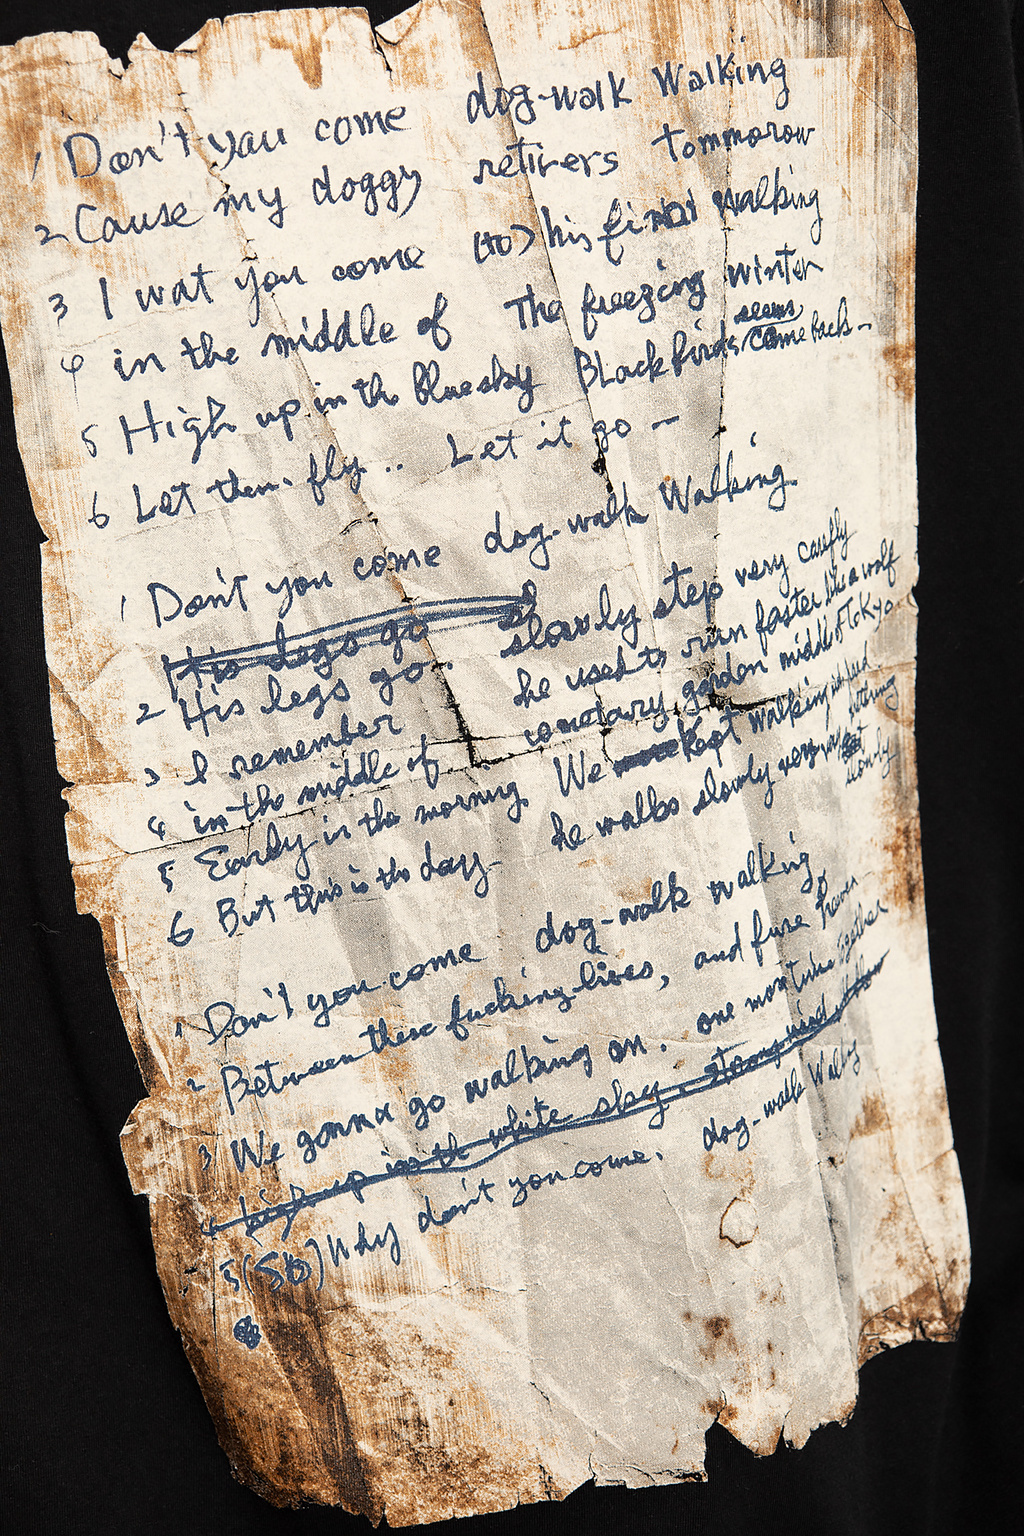 1 Don't you come dog-walk Walking
2 Cause my doggy retirers tommorow
3 I wat you come (to) his final walking
4 in the middle of The freezing winter
5 High up in the bluesky Blackbirds seems came back -
6 Let them fly .. Let it go -
1 Don't you come dog-walk Walking.
His legs go
2 His legs go.. slowly step very carefly
3 I remember he used to run faster like a wolf
4 in the middle of cemetary garden middle of Tokyo
5 Early in the morning We Kept walking
6 But this is the day - he walks slowly very slowly
1 Don't you come dog-walk walking
2 Between these fucking lives, and fuse heven
3 We gonna go walking on. one mor time together
4 high up in the white sky. strong wind
5 (So) Why don't you come. dog-walk Walking